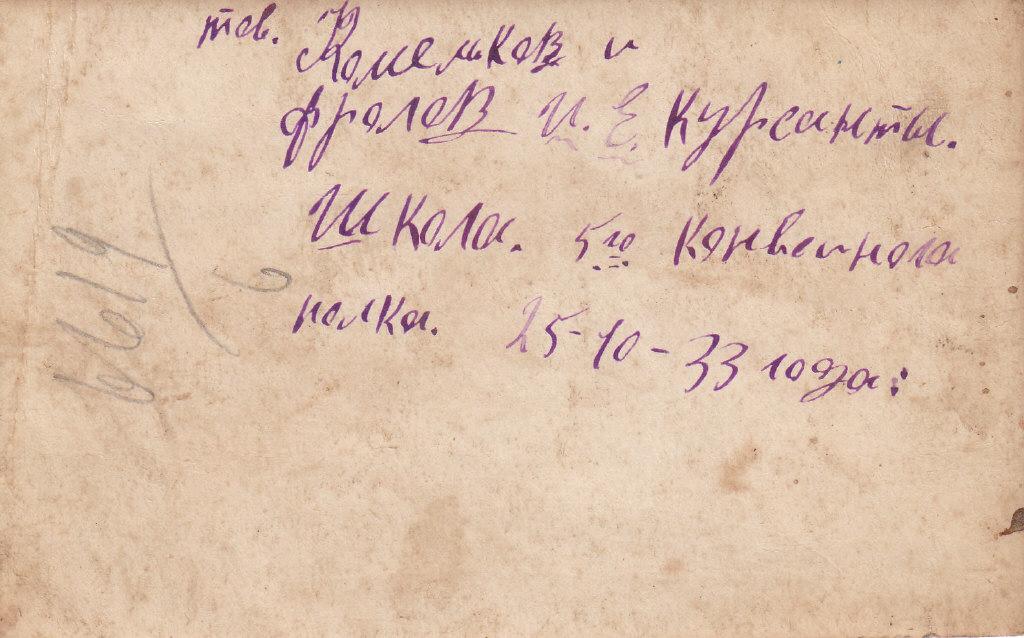 тов. Комельков и
Фролов И. Е. Курсанты.
Школа. 5го Конвойнога
полка. 25-10-33 года:
6619/6